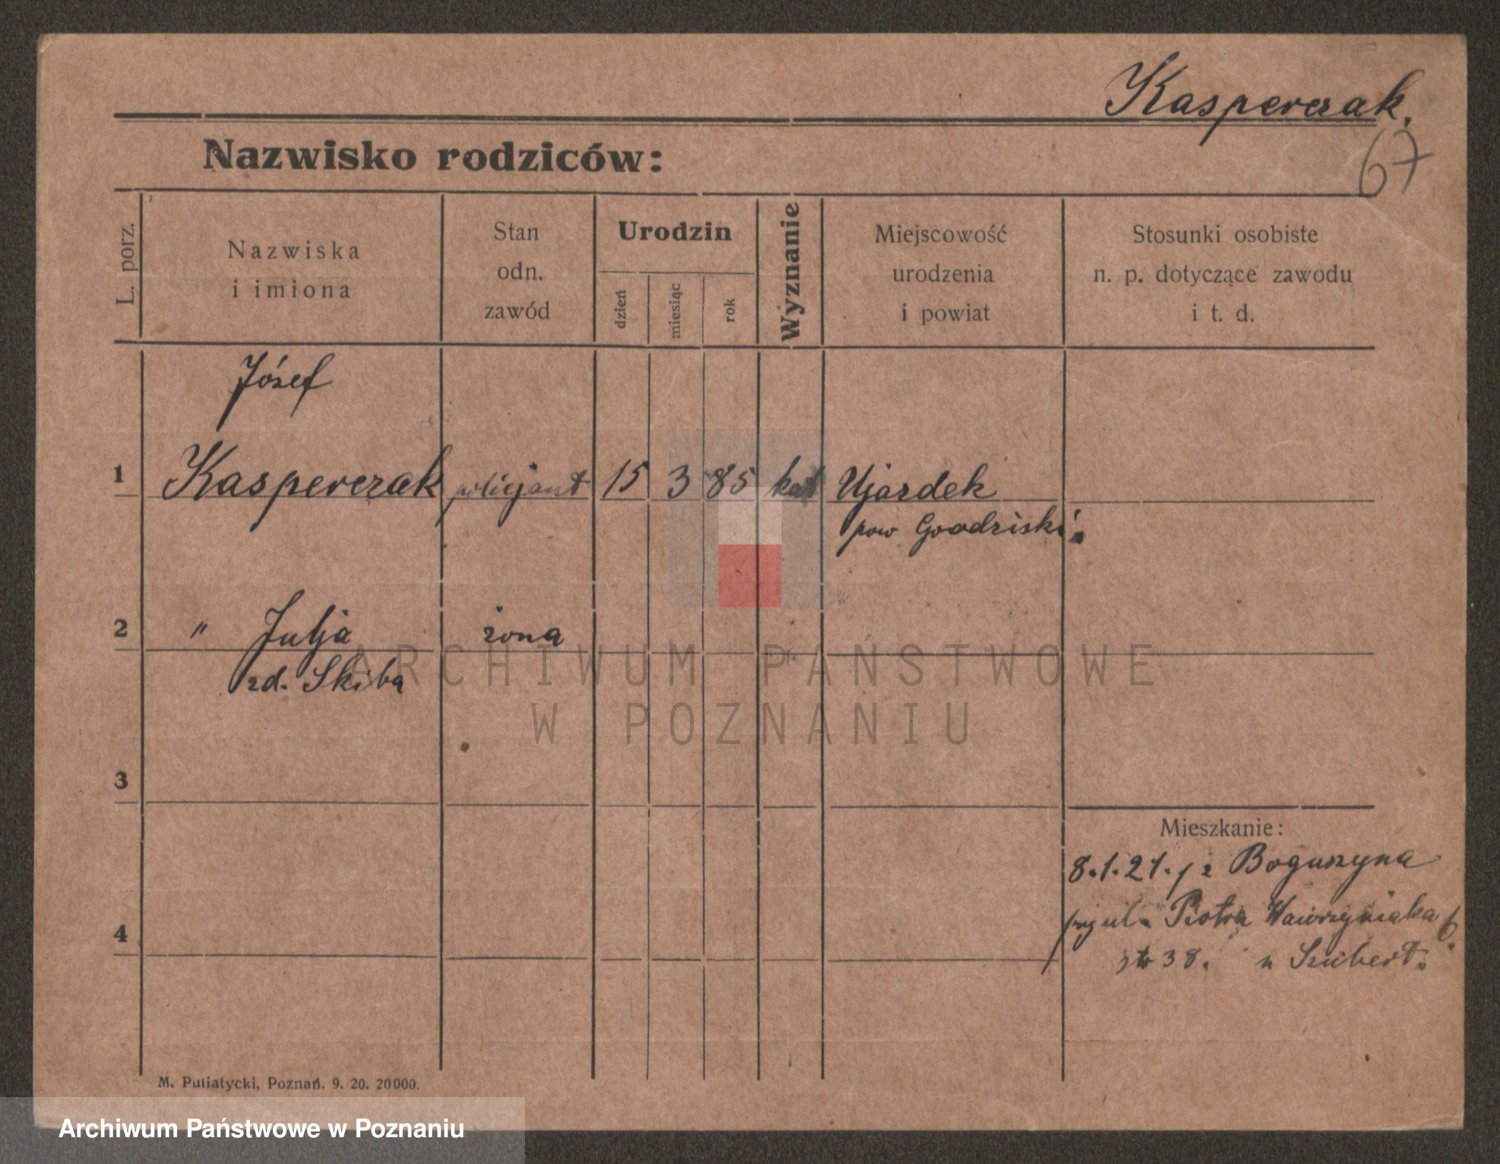 Kasperczak.
67
Nazwisko rodziców:
L. porz.
Nazwiska
i imiona
Stan
odn.
zawód
Urodzin
dzień
miesiąc
rok
Wyznanie
Miejscowość
urodzenia
i powiat
Stosunki osobiste
n. p. dotyczące zawodu
i t. d.
Józef
1 Kasperczak policjant 15 3 85 kat Ujazdek
pow Grodziski
2 " Julja żona
zd. Skiba
ARCHIWUM PAŃSTWOWE
W POZNANIU
3
Mieszkanie:
8.1.21. z Boguszyna
ul. Piotra Wawrzyniaka
4
38. u Szubert.
M. Putiatycki, Poznań. 9. 20. 20000.
Archiwum Państwowe w Poznaniu